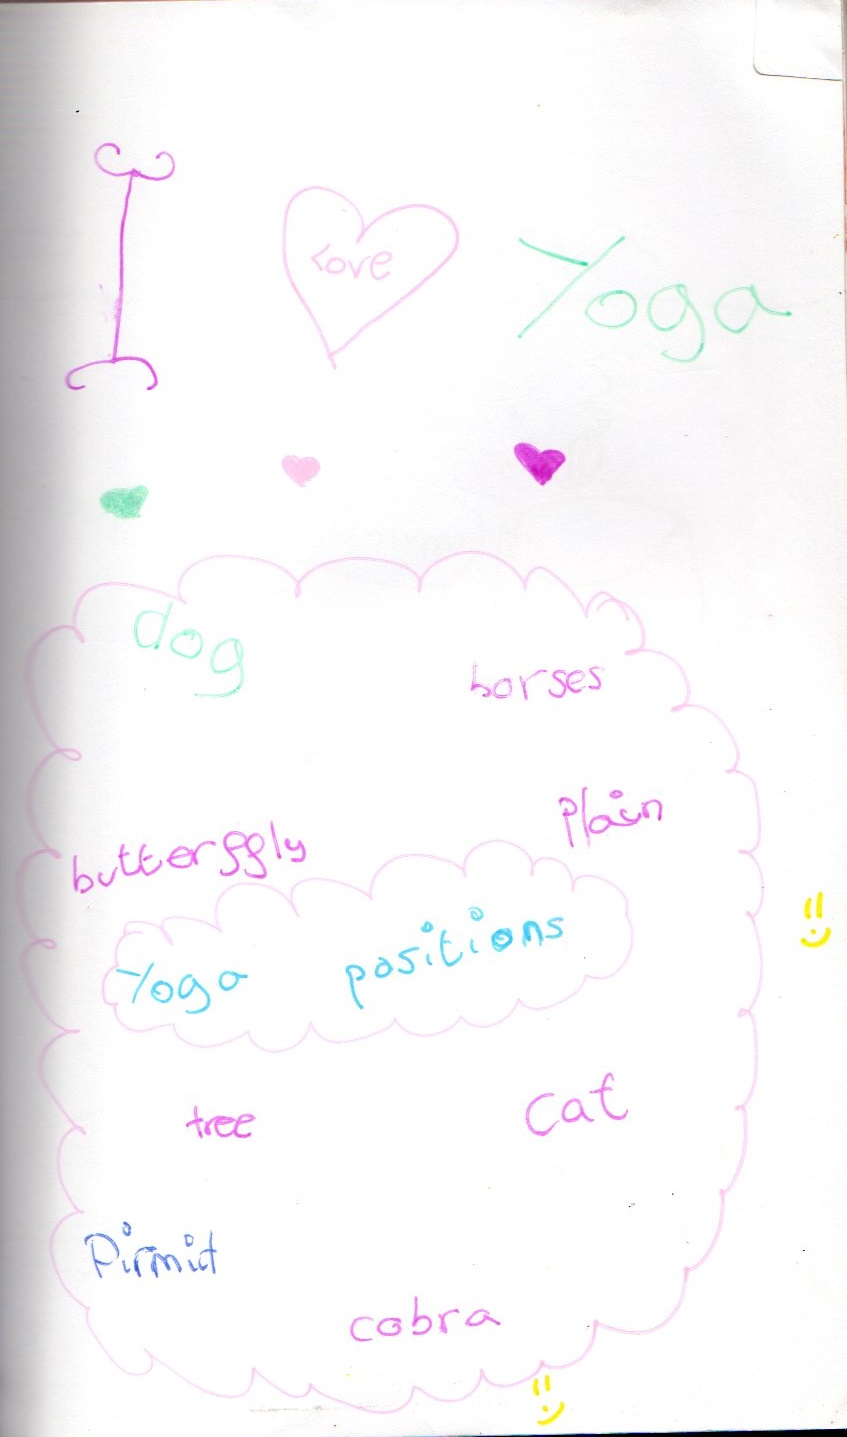 I love Yoga
dog
horses
plain
butterffly
Yoga positions
tree
cat
Pirmid
cobra